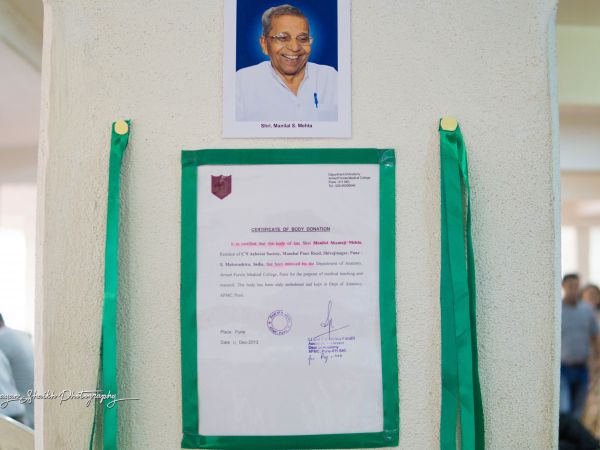 Shri. Manilal S. Mehta
Department of Anatomy
Armed Forces Medical College
Pune - 411 040
CERTIFICATE OF BODY DONATION
It is certified that the body of late Shri Manilal Mehta,
Resident of Society, Road, Shivajinagar, Pune-
5, Maharashtra, India, has been received by the Department of Anatomy,
Armed Forces Medical College, Pune for the purpose of medical teaching and
research. The body has been duly embalmed and kept in Dept of Anatomy,
AFMC, Pune.
Place: Pune
Date: Dec-2013
Dept of Anatomy
AFMC, Pune-411 040
Sheikh Photography